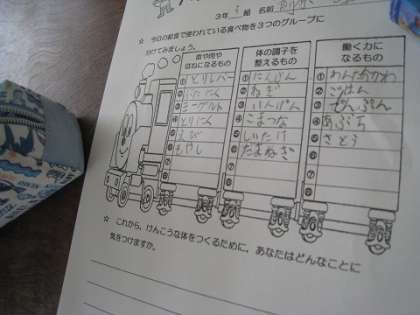 3年 組 名前
☆ 今日の給食で使われている食べ物を3つのグループに
分けてみましょう。
血や肉や
骨になるもの
① とりレバー
② ぶたにく
③ ヨーグルト
④ とりにく
⑤ えび
⑥ もやし
⑦
⑧
体の調子を
整えるもの
① にんじん
② ねぎ
③
④ こまつな
⑤ しいたけ
⑥ たまねぎ
⑦
⑧
働く力に
なるもの
①
② ごはん
③ でんぷん
④ あぶら
⑤ さとう
⑥
⑦
⑧
☆ これから、けんこうな体をつくるために、あなたはどんなことに
気をつけますか。